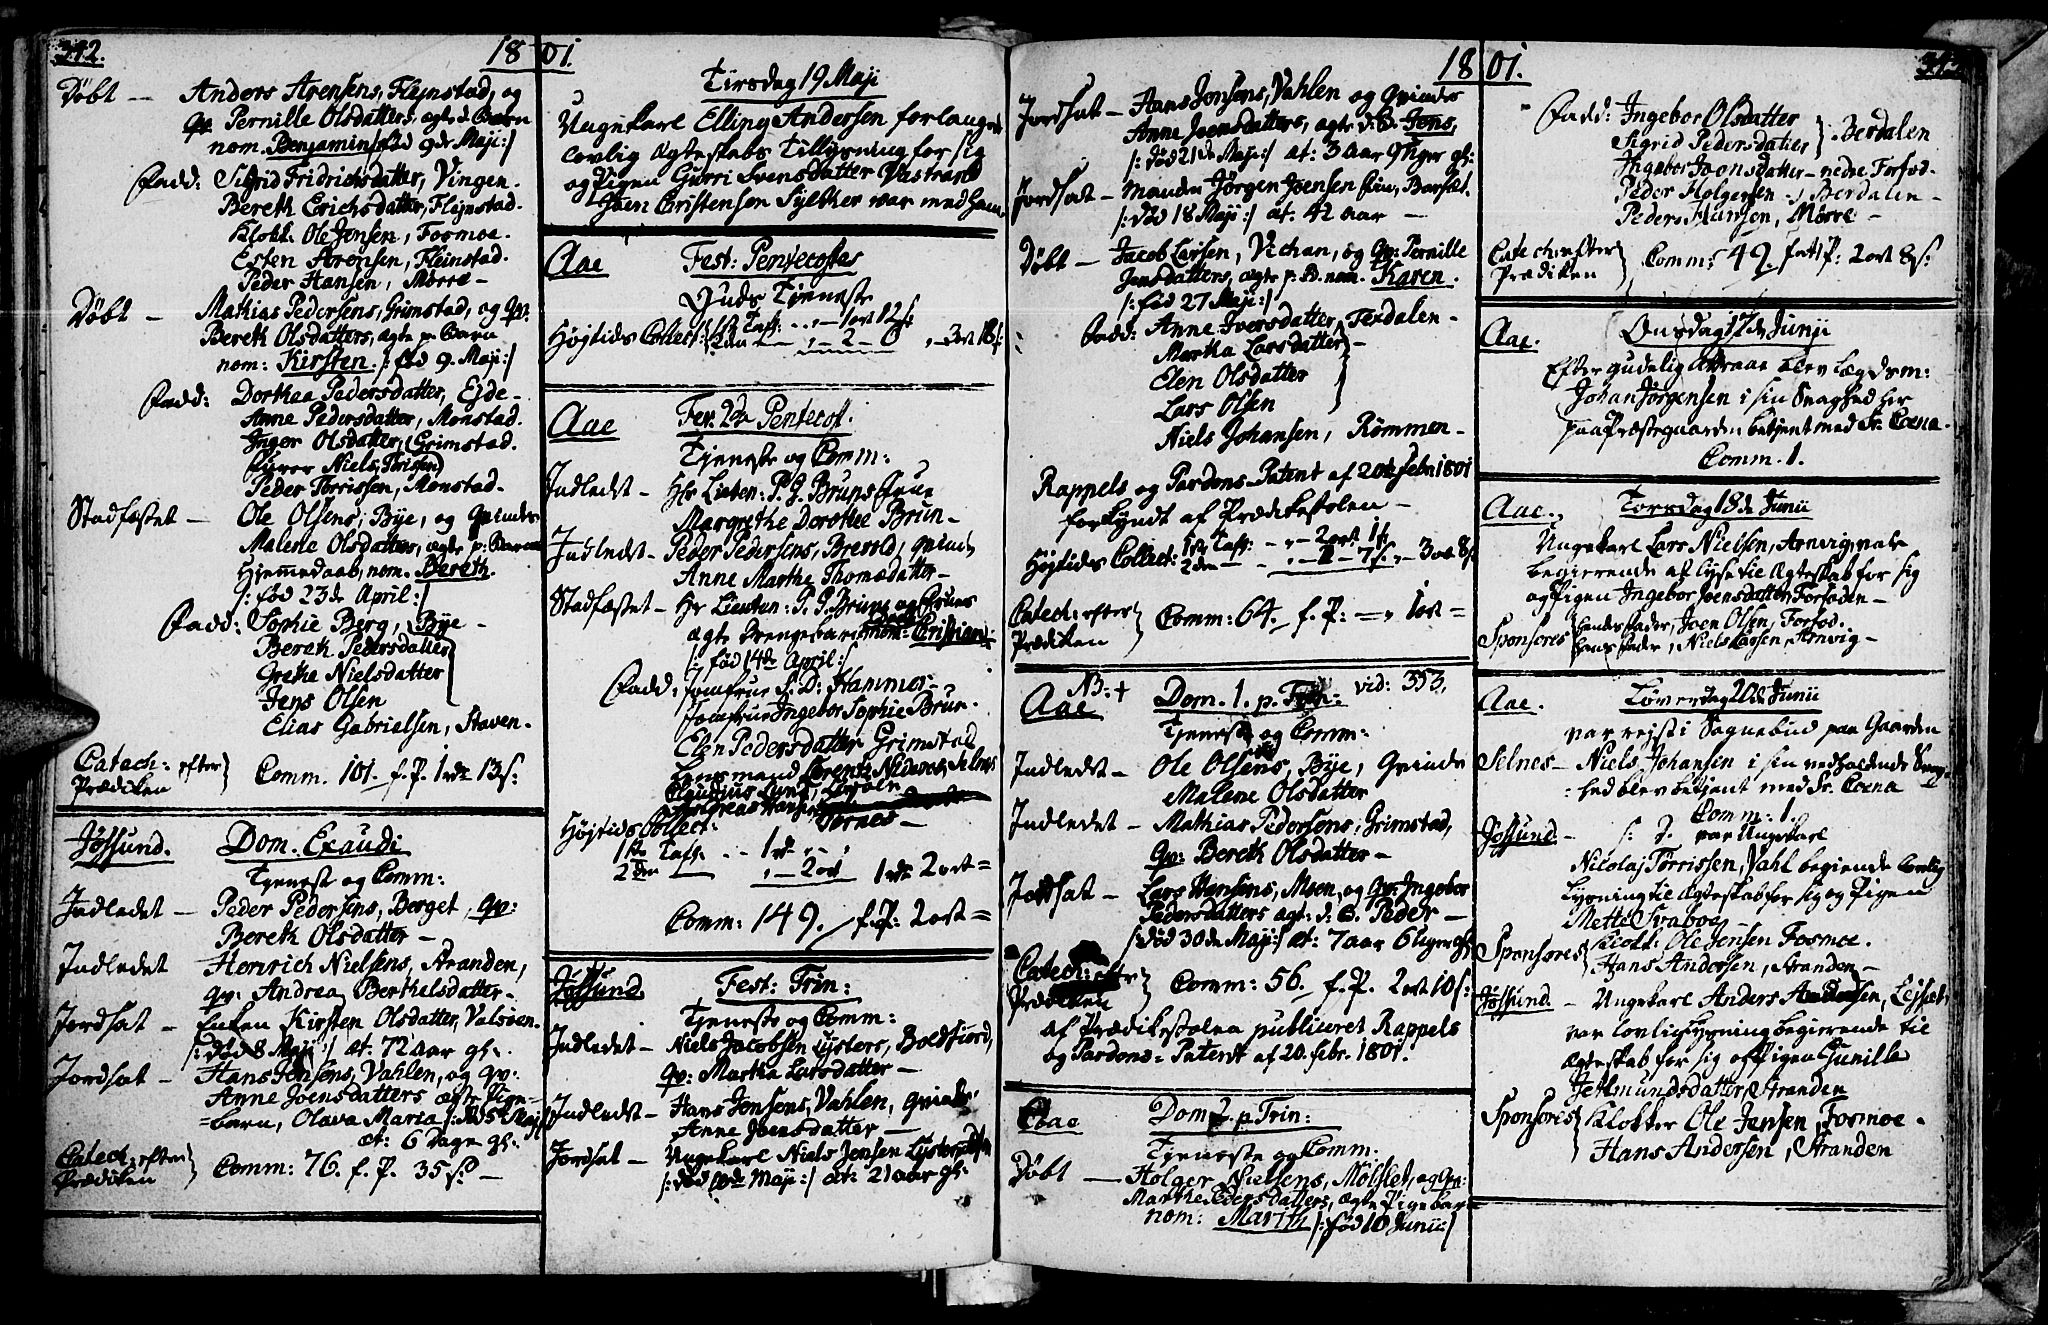 342.
1801.
Døbt — Anders Arensens, Flejnstad, og
qv. Pernille Olsdatters, ægte d. Barn
nom. Benjamin /: fød 9de Maji :/
Fadd: Sigrid Fridrichsdatter, Vingen.
Bereth Erichsdatter, Flejnstad.
Klokk. Ole Jensen, Fosmoe.
Esten Arensen, Fleinstad.
Peder Hansen, Mørre —
Døbt — Mathias Pedersens, Grimstad, og Qv:
Bereth Olsdatters, ægte p. Barn
nom: Kirsten. /: fød 9. Maji :/
Fadd: Dorthea Pedersdatter, Ejde —
Anne Pedersdatter, Monstad.
Inger Olsdatter, Grimstad.
Niels Torrissen
Peder Torrissen, Monstad.
Stadfæstet — Ole Olsens, Bye, og Qvindes
Malene Olsdatters, ægte p: Barn
Hjemmedaab, nom. Bereth.
/: fød 23de April :/
Fadd: Sophie Berg, Bye —
Bereth Pedersdatter
Grethe Nielsdatter
Jens Olsen
Elias Gabrielsen, Staven.
Catech: efter
Prædiken } Comm. 101. f. P. 1 rdr 13 s:
Jøssund. Dom. Exaudi
Tjeneste og Comm:
Indledet — Peder Pedersens, Berget, qv:
Bereth Olsdatter —
Indledet Henrich Nielsens, Aranden,
qv: Andrea Berthelsdatter —
Jordsat — Enken Kirsten Olsdatter, Valsøen.
/: død 8 Maji :/ æt: 72 aar gl.
Jordsat — Hans Jensens, Vahlen, og qv:
Anne Joensdatters ægte Pige-
barn, Olava Maria /: død 5te Maji
æt: 6 Dage gl.
Catech: efter
Prædiken } Comm: 76. f. P. 35 s: —
Tirsdag 19 Maji
Ungekarl Elling Andersen forlangede
lovlig Ægteskabs Tillysning for sig
og Pigen Gurri Svensdatter Vastrand
Joen Christensen Sylther var med ham
Aae Fest: Pentecostes
Guds Tjeneste
Højtids Collect: 1ste Tafl. — 1 ort 12 s:
2den — 2 - 0 , — 3 ort 18 s:
Aae Fer. 2da Pentecost.
Tjeneste og Comm:
Indledet — Hr Lieuten: P. J. Bruns Frue
Margrethe Dorothee Brun —
Indledet — Peder Pedersens, Brevold, qvinde
Anne Marthe Thomædatter —
Stadfæstet — Hr Lieuten: P. J. Bruns og Frues
ægte Drengebarn nom: Christian
/: fød 14de April :/
Fadd: Jomfrue S. D: Hammer —
Jomfrue Ingebor Sophie Brun.
Elen Pedersdatter Grimstad
Lensmand Lorentz Niderøe, Selnes
Claudius Lund,
Tørnes —
Højtids Collect:
1ste Tafl. — 1 rdr
2den — , — 2 ort 1 rdr 2 ort =
Comm: 149. f. P: 2 ort =
Jøssund. Fest: Trin:
Tjeneste og Comm:
Indledet — Niels Jacobsen Lysters, Boldfiord,
qv: Martha Larsdatter —
Indledet — Hans Jensens, Vahlen, qvinde
Anne Joensdatter —
Jordsat — Ungekarl Niels Jensen
/: død Maji :/ æt: 21 aar gl.
1801.
Jordsat — Hans Jensens, Vahlen og Qvindes
Anne Joensdatters, ægte d. B. Jens,
/: død 21de Maji :/ æt: 3 aar 9 Uger gl:
Jordsat — Manden Jørgen Joensen Barsæt.
/: død 18 Maji :/ æt: 42 aar —
Døbt — Jacob Larsen, Vechan, og Qv: Pernille
Jensdatters, ægte p. B. nom. Karen.
/: fød 27 Maji :/
Fadd: Anne Iversdatter, Ferdalen —
Martha Larsdatter
Elen Olsdatter
Lars Olsen
Niels Johansen, Rømmen —
Rappels og Pardons-Patent af 20de Febr 1801
forkyndt af Prædikestolen —
Højtids Collect: 1ste Tafl. — 2 ort 1 s:
2den — 7 s. — 3 ort 8 s
Catech: efter
Prædiken } Comm: 64. f. P: = 1 ort =
Aae NB: + Dom. 1. p. Trin: vid: 353.
Tjeneste og Comm:
Indledet — Ole Olsens, Bye, Qvinde
Malene Olsdatter
Indledet — Mathias Pedersens, Grimstad,
qv: Bereth Olsdatter —
Jordsat — Lars Hansens, Moen, og qv: Ingebor
Pedersdatters ægt: d. B. Peder —
/: død 30de Maji :/ æt: 7 aar 6 Uger gl:
Catech: efter
Prædiken } Comm: 56. f. P. 2 ort 10 s:
af Prædikestolen publiceret Rappels
og Pardons-Patent af 20. Febr. 1801.
Aae Dom 2 p Trin:
Tjeneste og Comm.
Døbt — Holger Nielsens, Mølslet, og qv:
Marthe Pedersdatters, ægte Pigebarn
nom: Marith /: fød 10 Junii :/
Fadd: Ingebor Olsdatter
Sigrid Pedersdatter } Berdalen
Ingebor Joensdatter — nedre Forfod.
Peder Holgersen, Berdalen —
Peder Hansen, Mørre —
Catech: efter
Prædiken } Comm: 49. f. P: 2 ort 8 s:
Aae. Onsdag 17de Junii
Efter gudelig Attraae blev Lægdsm:
Johan Jørgensen i sin Svaghed her
paa Præstegaarden betjent med Sr. Coena.
Comm. 1.
Aae. Torsdag 18de Junii
Ungekarl Lars Nielsen, Arnvig, var
begierende at lyse til Ægteskab for sig
og Pigen Ingebor Joensdatter Forfoden —
Sponsores { hendes Fader, Joen Olsen, Forfod.
hans Fader, Niels Larsen, Arnvig —
Aae. Løverdag 20de Junii
var rejst i Sognebud paa Gaarden
Selnes — Niels Johansen i sin vedholdende Svag-
hed blev betjent med Sr. Coena
Comm: 1.
Jøssund. — s: D. var Ungekarl
Nicolaj Torrissen, Vahl begierende lovlig
Lysning til Ægteskab for sig og Pigen
Mette Svaboe
Sponsores { Klokk: Ole Jensen Fosmoe.
Hans Andersen, Stranden —
Jøssund — Ungekarl Anders Andersen,
var lovlig Lysning begierende til
Ægteskab for sig og Pigen Gunille
Jetmundsdatter, Stranden
Sponsores { Klokker Ole Jensen, Fosmoe.
Hans Andersen, Stranden